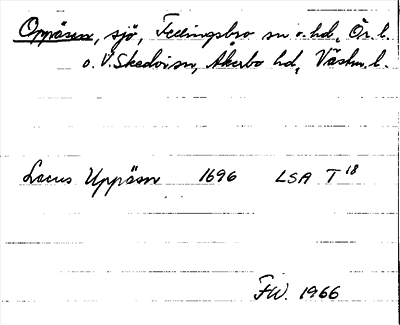 Oppåsen, sjö, Fellingsbro sn o. hd, Ör. l.
o. V. Skedvi sn, Åkerbo hd, Västm. l.
Lacus Uppåsen 1696 LSA T 18
FW. 1966